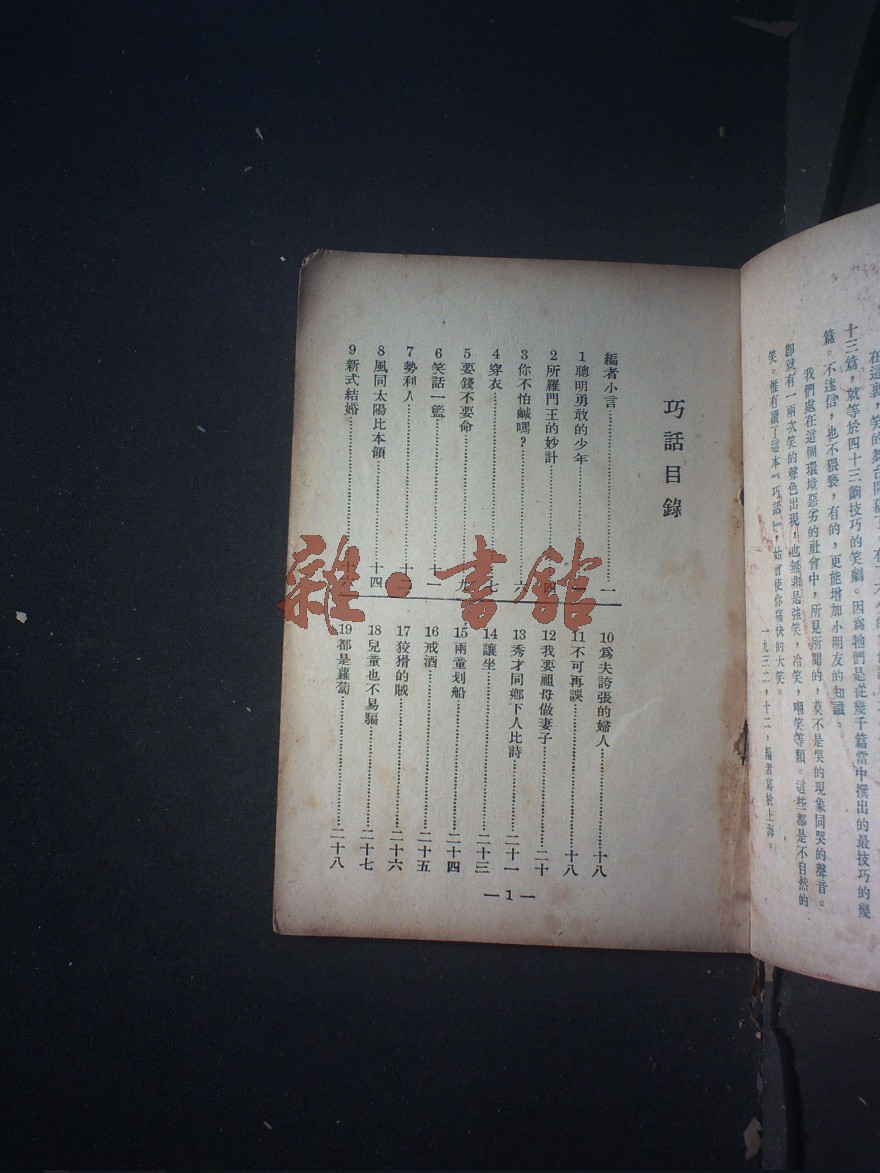 在這裏，笑的舞台開幕了，有
十三篇，就等於四十三齣技巧的笑劇。因爲牠們是從幾千篇當中撰出的最技巧的幾
篇。不迷信，也不猥褻，有的，更能增加小朋友的知識。
我們處在這個環境惡劣的社會中，所見所聞的，莫不是哭的現象同哭的聲音。
卽就有一兩次笑的聲色出現，也無非是強笑，冷笑，嘲笑等類。這些都是不自然的
笑。惟有讀了這本『巧話』，始會使你痛快的大笑。
一九三二，十二，編者寫於上海。
巧話目錄
編者小言…………一
1聰明勇敢的少年…………
2所羅門王的妙計…………四
3你不怕鹹嗎？…………六
4穿衣…………七
5要錢不要命…………九
6笑話一籃…………十一
7勢利人…………十二
8風同太陽比本領…………十四
9新式結婚…………十六
10爲夫誇張的婦人…………十八
11不可再誤…………十八
12我要祖母做妻子…………二十
13秀才同鄉下人比詩…………二十一
14讓坐…………二十三
15兩童划船…………二十四
16戒酒…………二十五
17狡猾的賊…………二十六
18兒童也不易騙…………二十七
19都是蘿蔔…………二十八
—1—
雜·書館